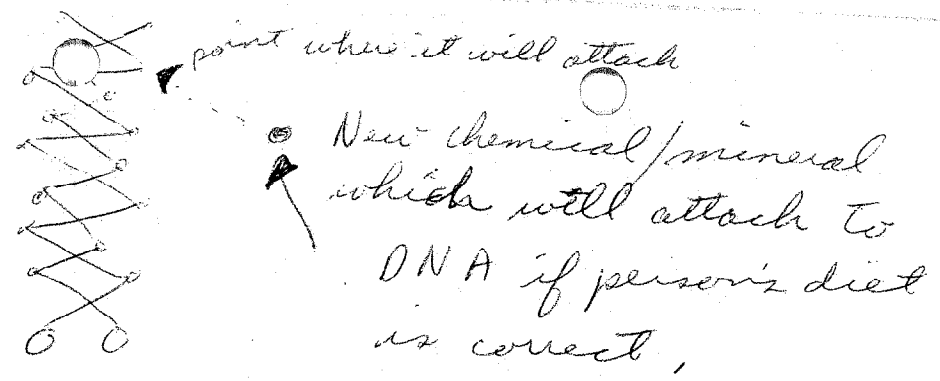 point where it will attach
New chemical/mineral
which will attach to
DNA if person's diet
is correct,